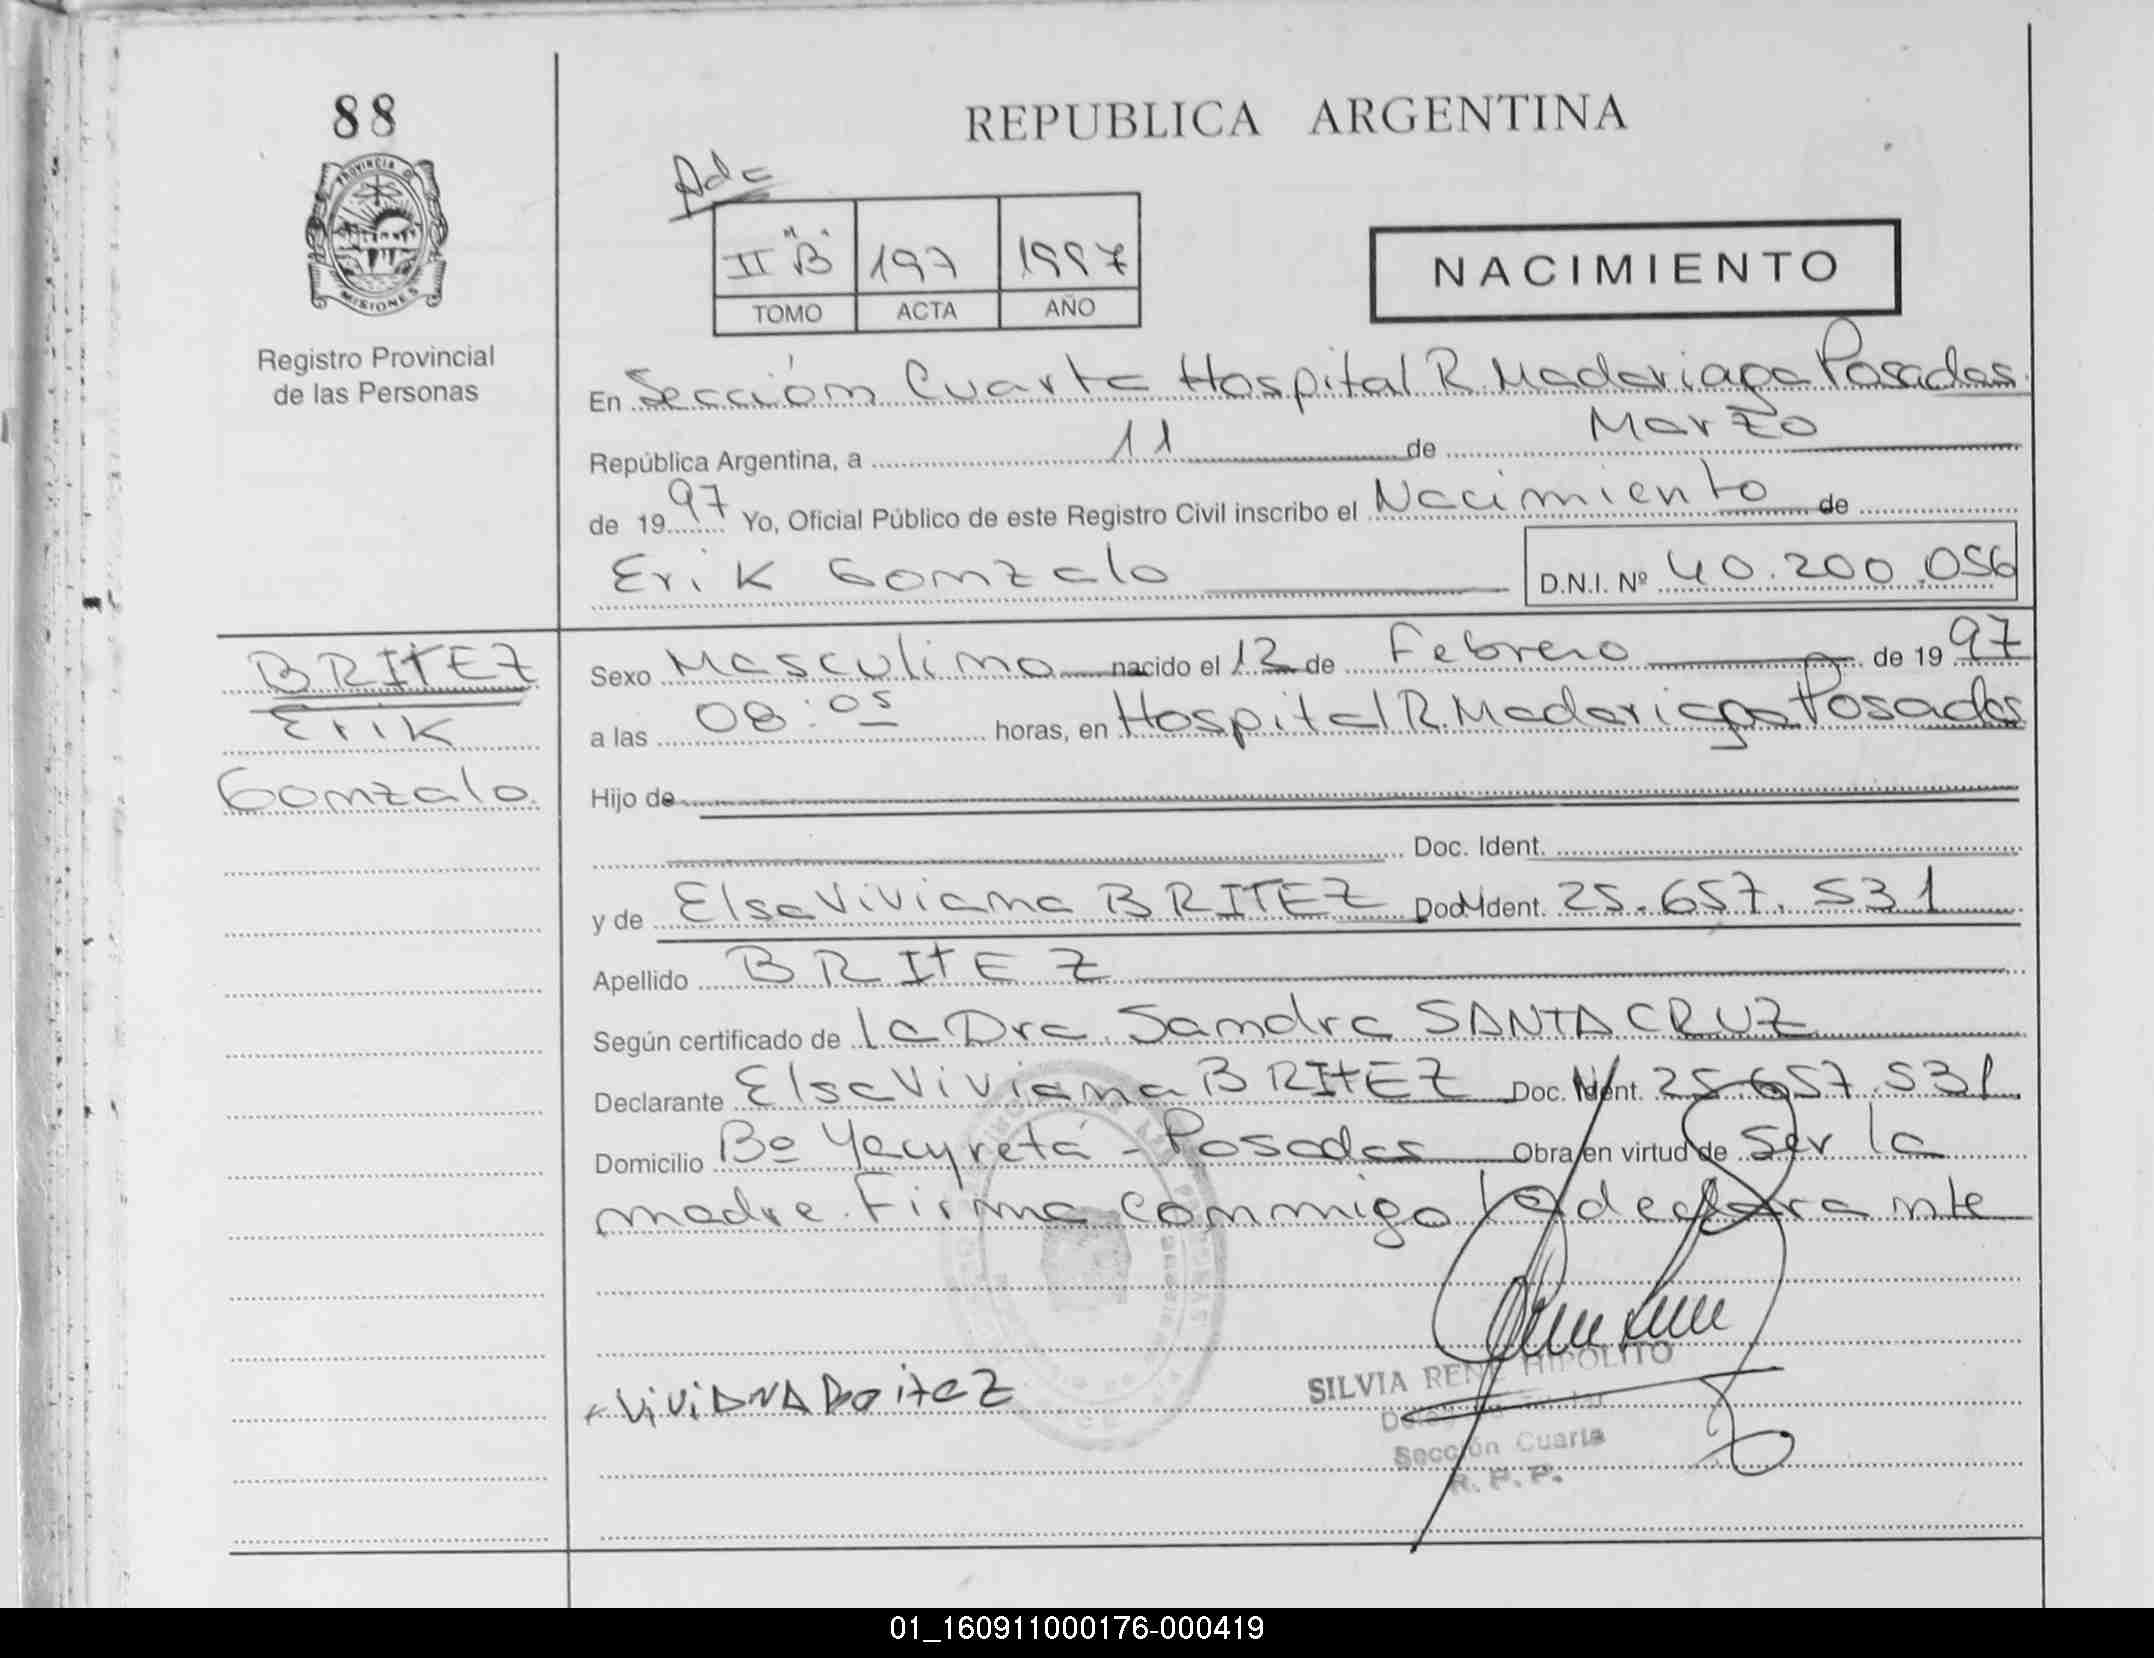 88
REPUBLICA ARGENTINA
PROVINCIA DE
MISIONES
Registro Provincial
de las Personas
Adc
II "B" 197 1997
TOMO ACTA AÑO
NACIMIENTO
En Sección Cuarta Hospital R. Madariaga Posadas
República Argentina, a 11 de Marzo
de 1997 Yo, Oficial Público de este Registro Civil inscribo el Nacimiento de
Erik Gonzalo D.N.I. Nº 40.200.056
BRITEZ
Erik
Gonzalo
Sexo Masculino nacido el 12 de Febrero de 1997
a las 08:05 horas, en Hospital R. Madariaga Posadas
Hijo de
Doc. Ident.
y de Elsa Viviana BRITEZ Doc. Ident. 25.657.531
Apellido BRITEZ
Según certificado de la Dra. Sandra SANTA CRUZ
Declarante Elsa Viviana BRITEZ Doc. Ident. 25.657.531
Domicilio Bº Yacyretá - Posadas Obra en virtud de ser la
madre. Firma conmigo la declarante
ViViANA BritEZ
SILVIA RENE HIPOLITO
Sección Cuarta
R. P. P.
01_160911000176-000419